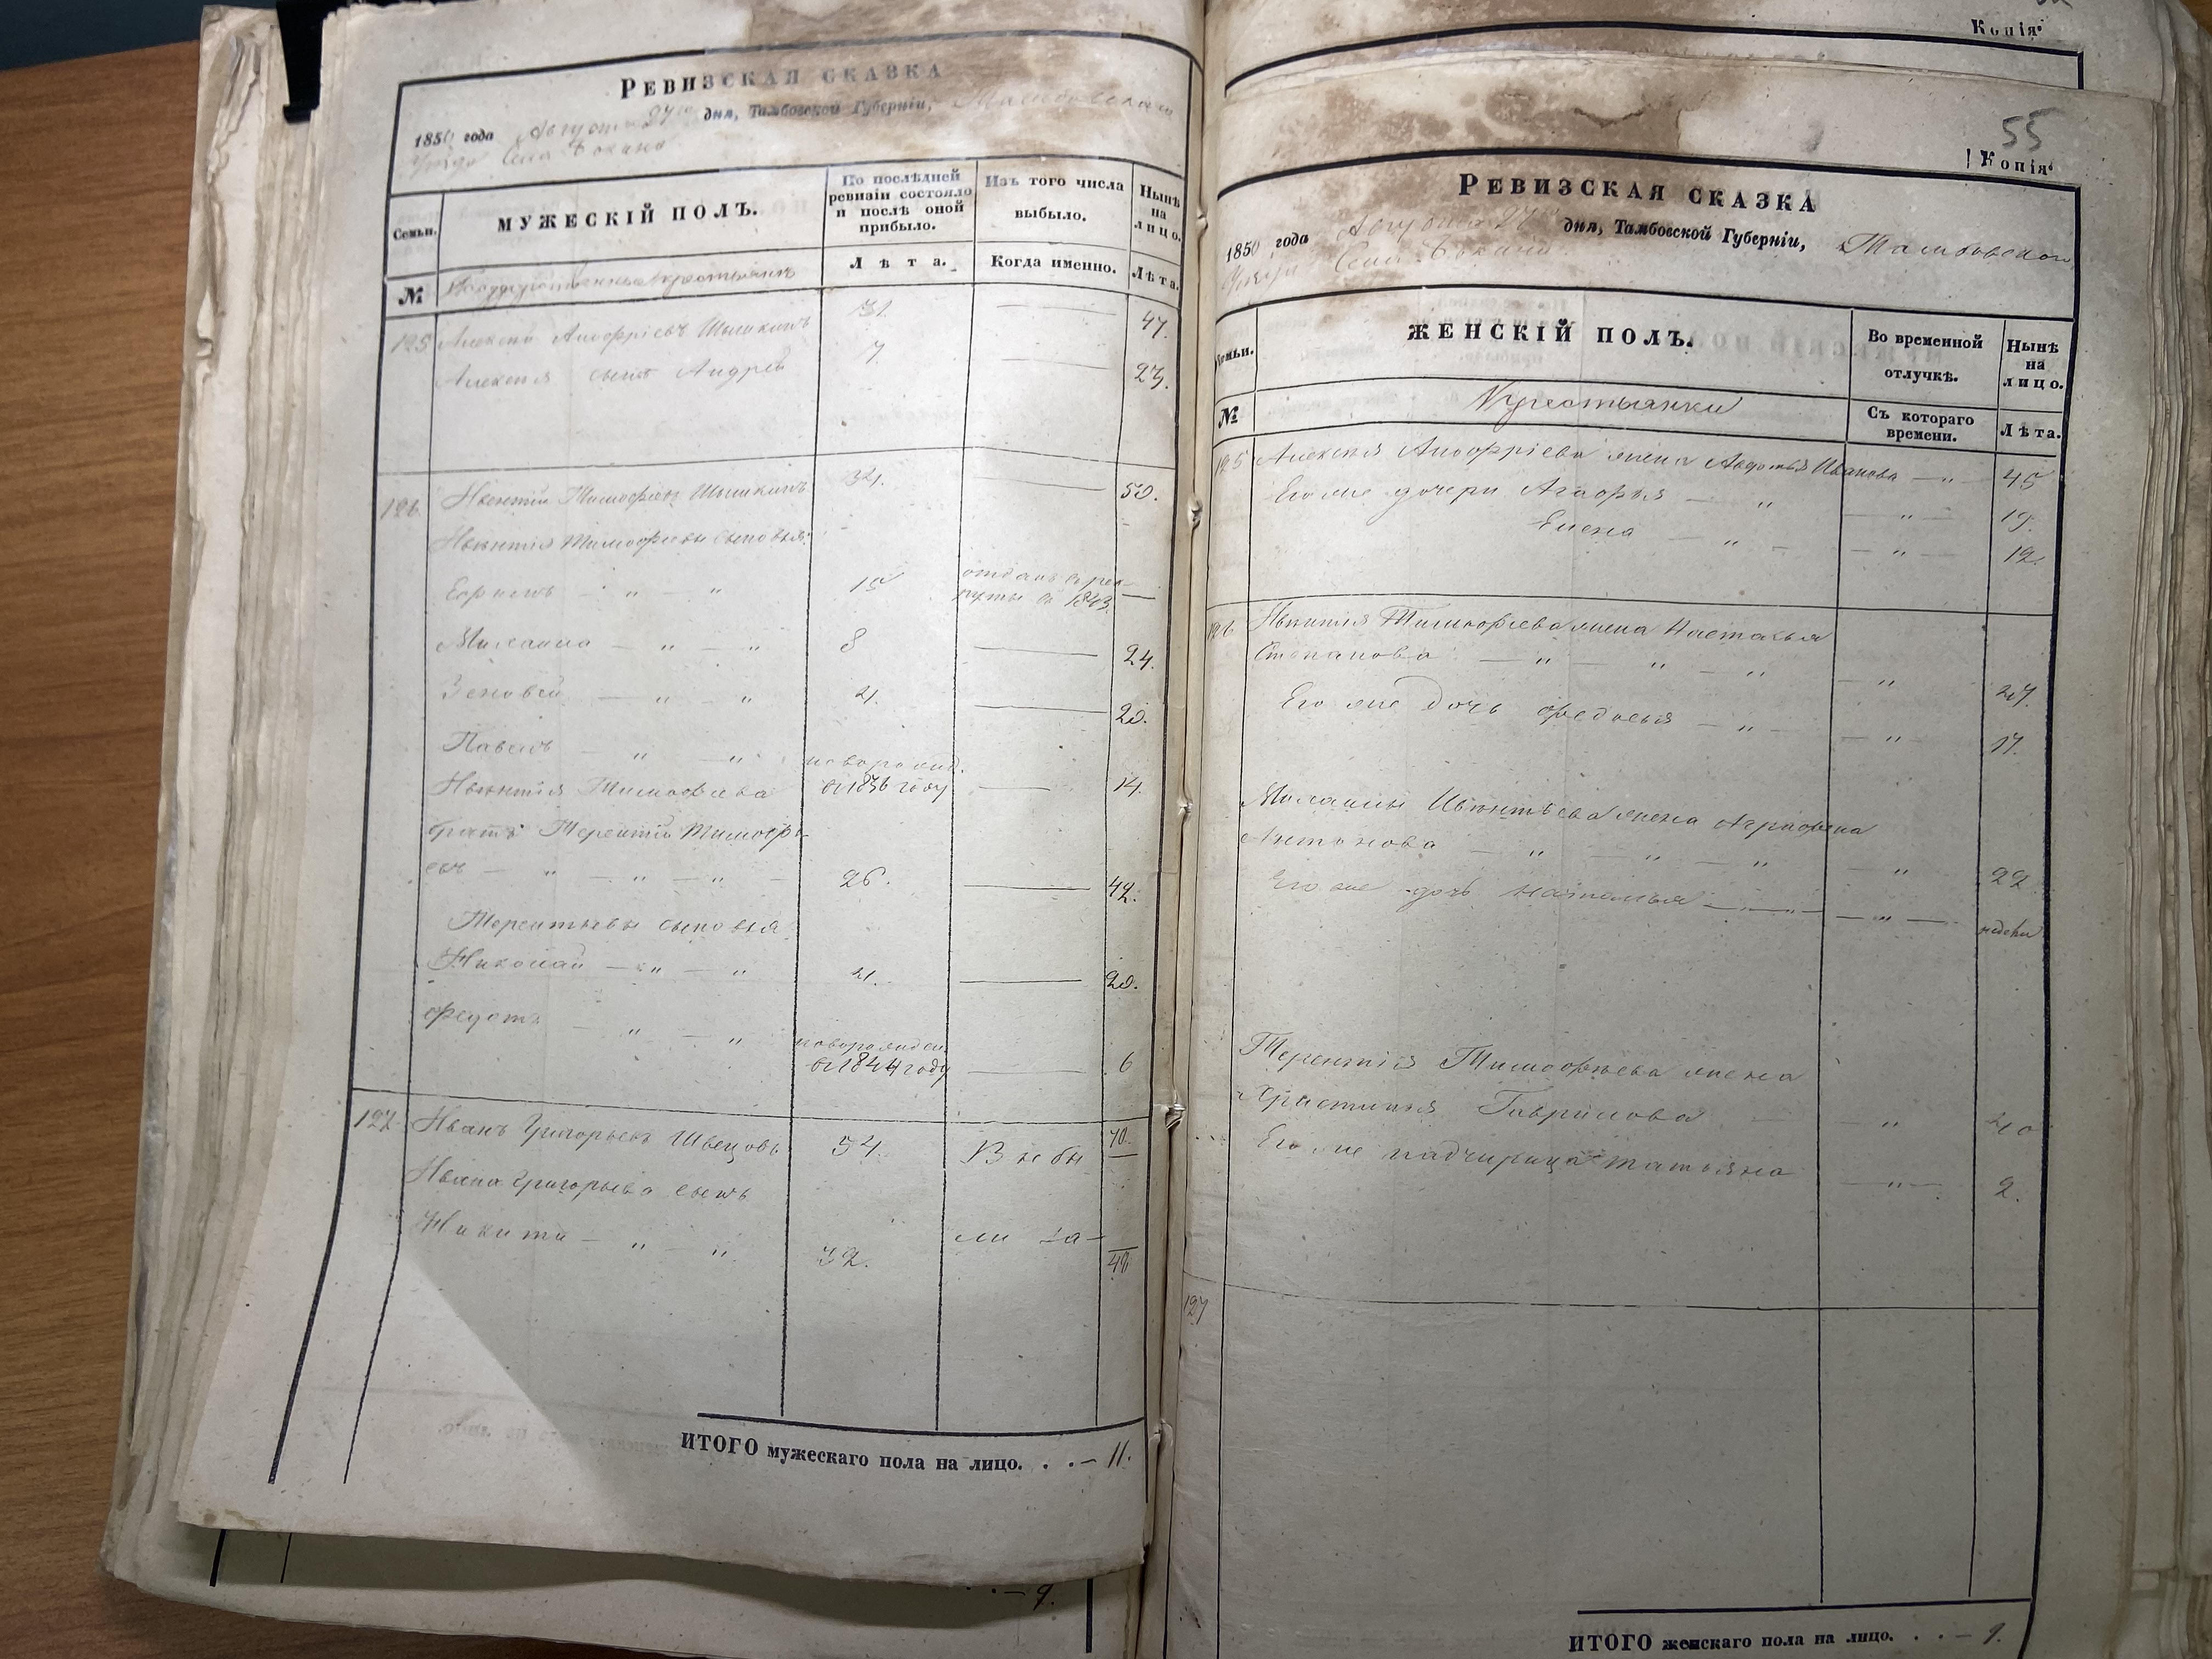 РЕВИЗСКАЯ СКАЗКА
1850 года Августа 27го дня, Тамбовской Губерніи, Тамбовскаго
Уѣзда Села
Семьи.
МУЖЕСКІЙ ПОЛЪ.
По послѣдней ревизіи состояло и послѣ оной прибыло.
Изъ того числа выбыло.
Нынѣ на лицо.
№
Государственные крестьяне
Лѣта.
Когда именно.
Лѣта.
125 Алексѣй Ануфріевъ Шишкинъ 31. 47.
Алексѣя сынъ Андрей 7. 23.
126. Ивентій Тимофѣевъ Шишкинъ 34. 50.
Ивентія Тимофѣева сыновья:
15 отданъ въ рек-
руты въ 1843.
8 24.
Зеновей 4. 20.
Павелъ новорожд.
въ 1836 году 14.
Ивентія Тимофѣева
братъ Терентій Тимофѣ-
евъ 26. 42.
Терентьевы сыновья
Николай 4. 20.
Федотъ новорожден.
въ 1844 году 6
127. Иванъ Григорьевъ Швецовъ 54. В не бы 70.
Ивана Григорьева сынъ
Никита 32. ли 48
ИТОГО мужескаго пола на лицо. . .— 11.
. .— 9.
Копія.
55
Копія.
РЕВИЗСКАЯ СКАЗКА
1850 года Августа 27го дня, Тамбовской Губерніи, Тамбовскаго
Уѣзда Села
Семьи.
ЖЕНСКІЙ ПОЛЪ.
Во временной отлучкѣ.
Нынѣ на лицо.
№
Крестьянки
Съ котораго времени.
Лѣта.
125 Алексѣя Ануфріева жена Авдотья Иванова — " — 45
Его же дочери Агафья — " — " — 19.
Елена — " — — " — 12.
126. Ивентія Тимофѣева жена Настасья
Степанова — " — " — " — " 47.
Его же дочь Федосья — " — — " — 17.
Ивентьева жена Аграфена
Антонова — " — " — " " 22
Его же дочь Наталья — " — — " — недели
Терентія Тимофѣева жена
Христинья Гаврилова — " 40
Его же падчирица Татьяна — " — 2.
127
ИТОГО женскаго пола на лицо. . .— 9.